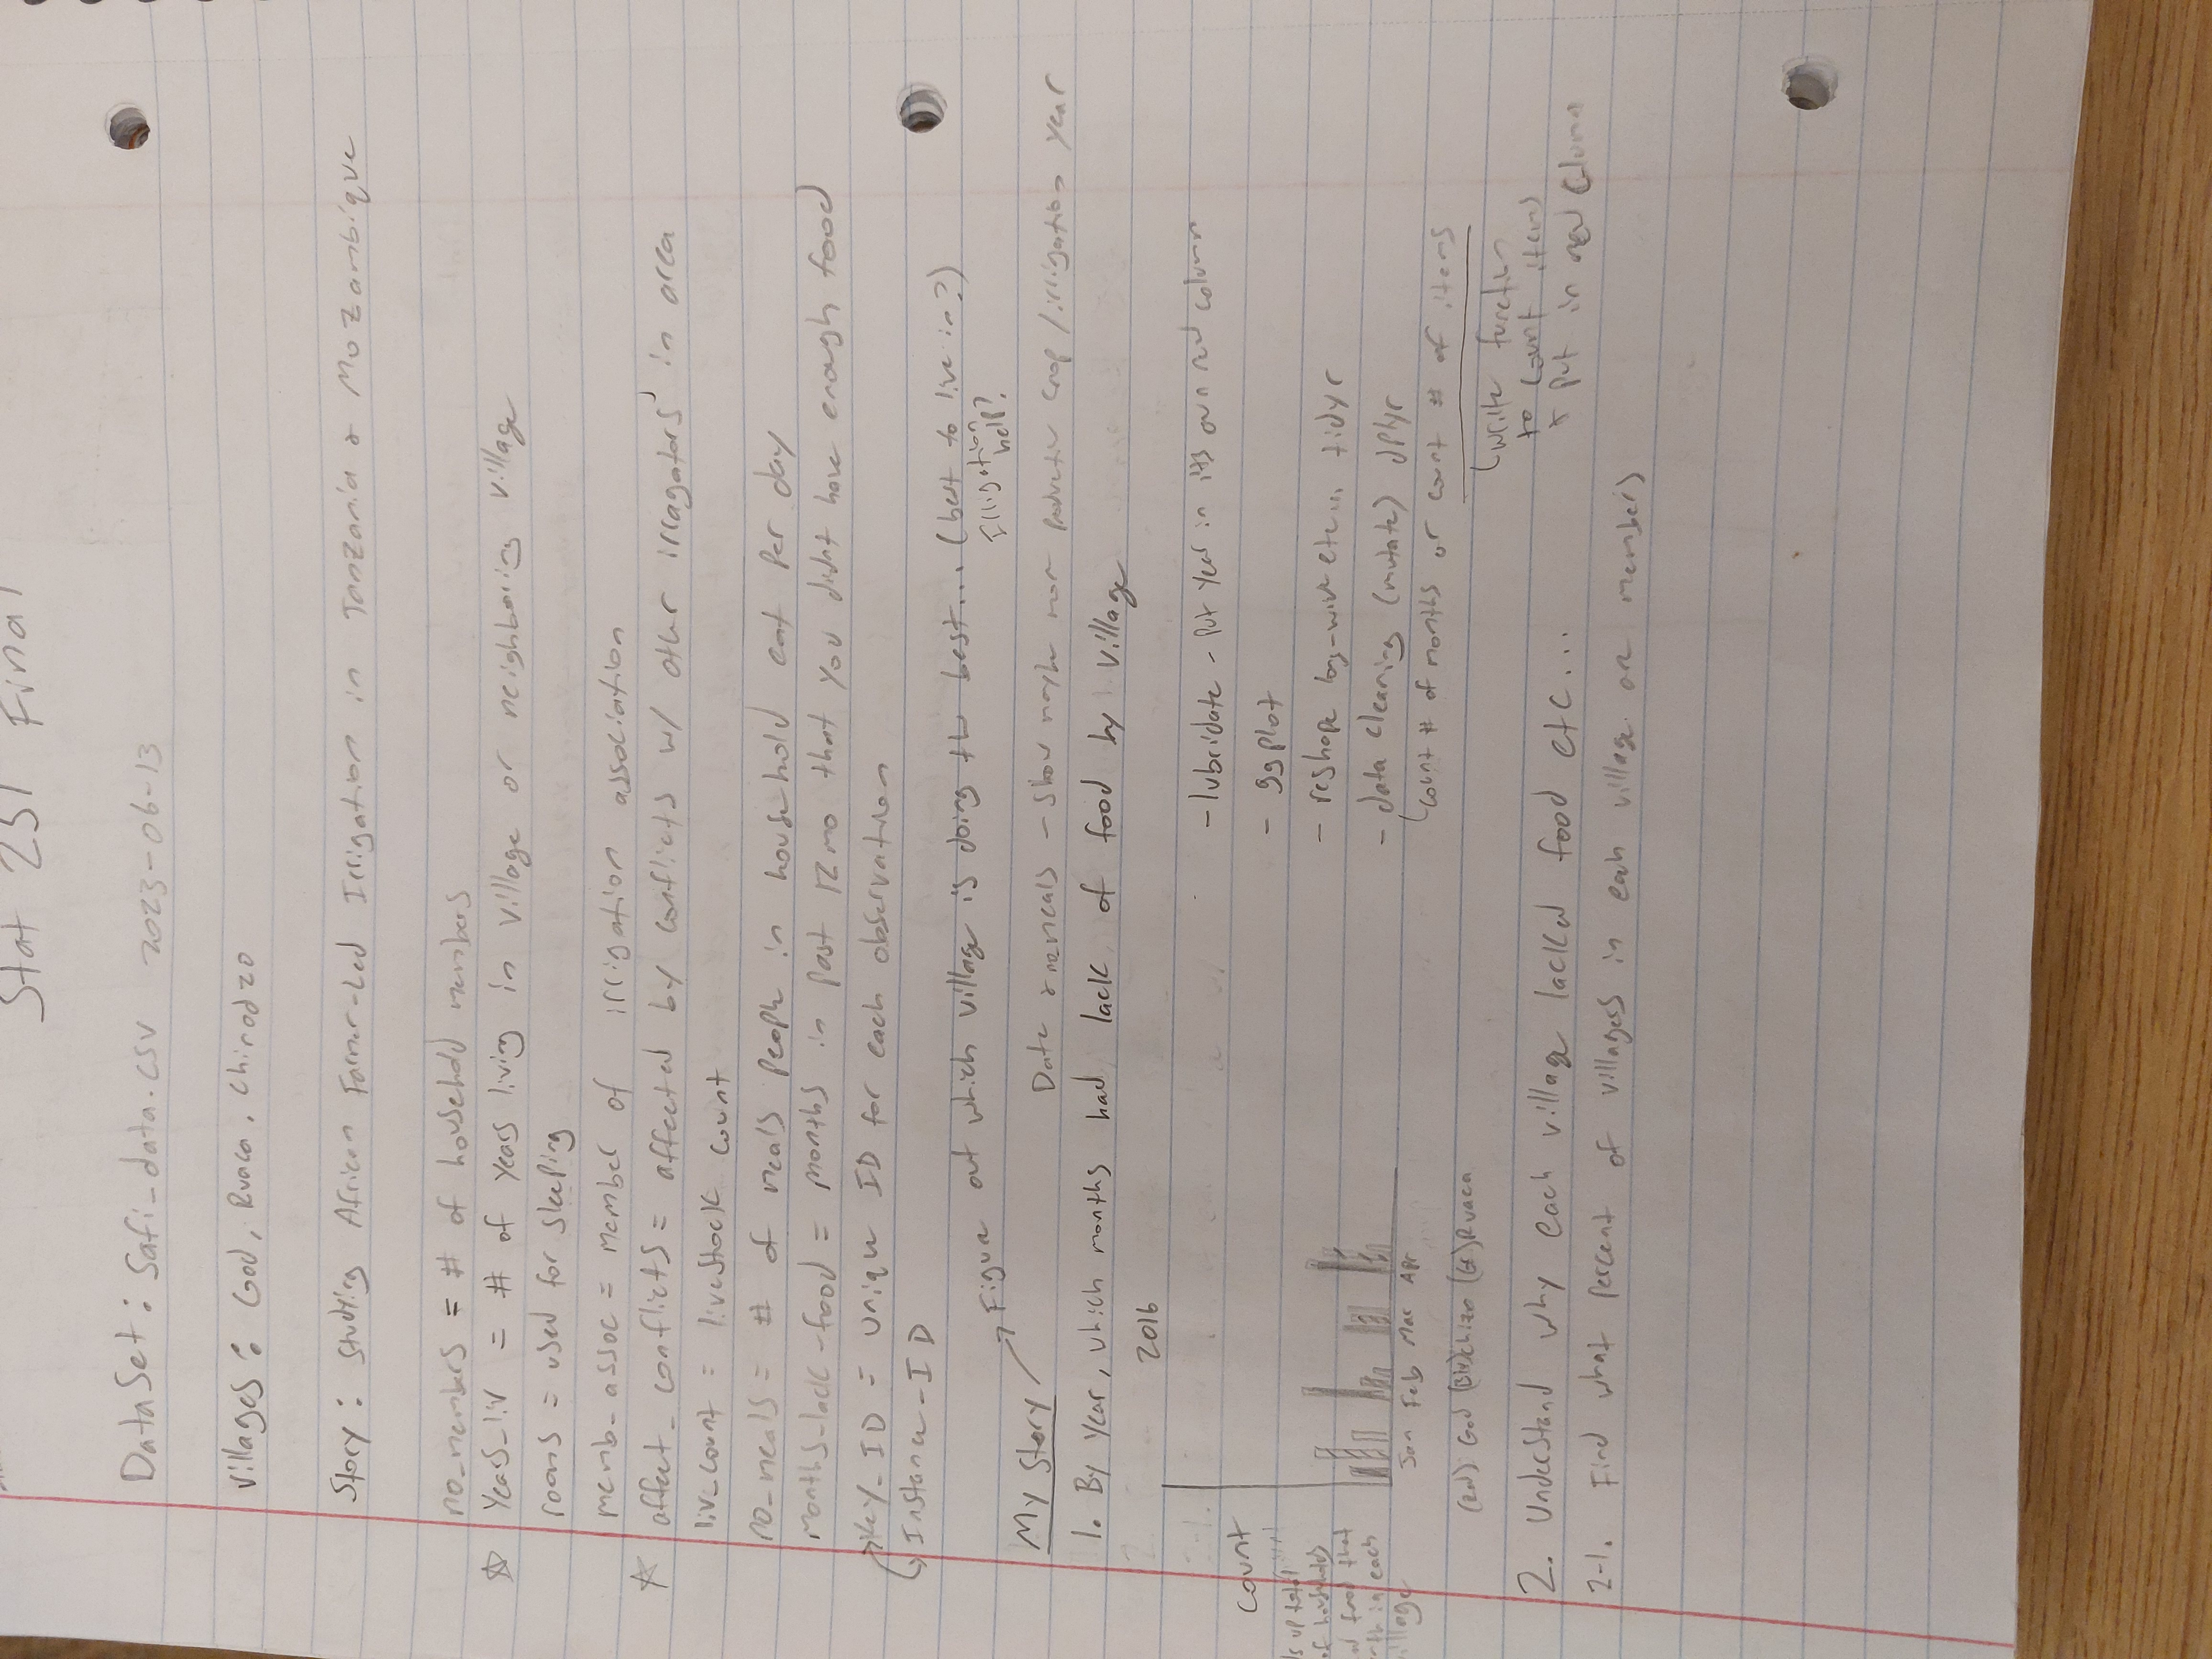 Stat 251 Final
DataSet: Safi_data.csv 2023-06-13
Villages: God, Ruaca, Chirodzo
Story: Studying African Farmer-Led Irrigation in Tanzania & Mozambique
no_members = # of household members
☆ years_liv = # of years living in village or neighboring village
rooms = used for sleeping
memb_assoc = member of irrigation association
☆ affect_conflicts = affected by conflicts w/ other irragators' in area
liv_count = livestock count
no_meals = # of meals people in household eat per day
months_lack_food = months in past 12 mo that you didnt have enough food
Key_ID = unique ID for each observation
Instance_ID
My Story → Figure out which village is doing the best... (best to live in?)
Irrigation
help?
Date & no_meals - show maybe more productive crop/irrigation year
1. By year, which months had lack of food by village
2016
Count
up total
of households
food that
in each
village
Jan Feb Mar Apr
(Red) God (Blu) Chizo (Gr) Ruaca
- lubridate - put year in its own new column
- ggplot
- reshape long-wide etc... tidyr
- data cleaning (mutate) dplyr
count # of months or count # of items
write function
to count items
& put in new column
2. Understand why each village lacked food etc...
2-1. Find what percent of villagers in each village are members